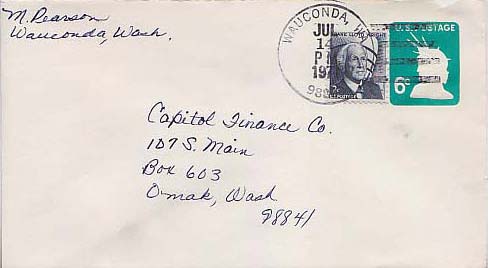 M. Pearson
Wauconda, Wash.
WAUCONDA, W
JUL
14
P
19
989
FRANK LLOYD WRIGHT
2c
U.S. POSTAGE
U.S. POSTAGE
6c
Capitol Finance Co.
107 S. Main
Box 603
Omak, Wash
98841